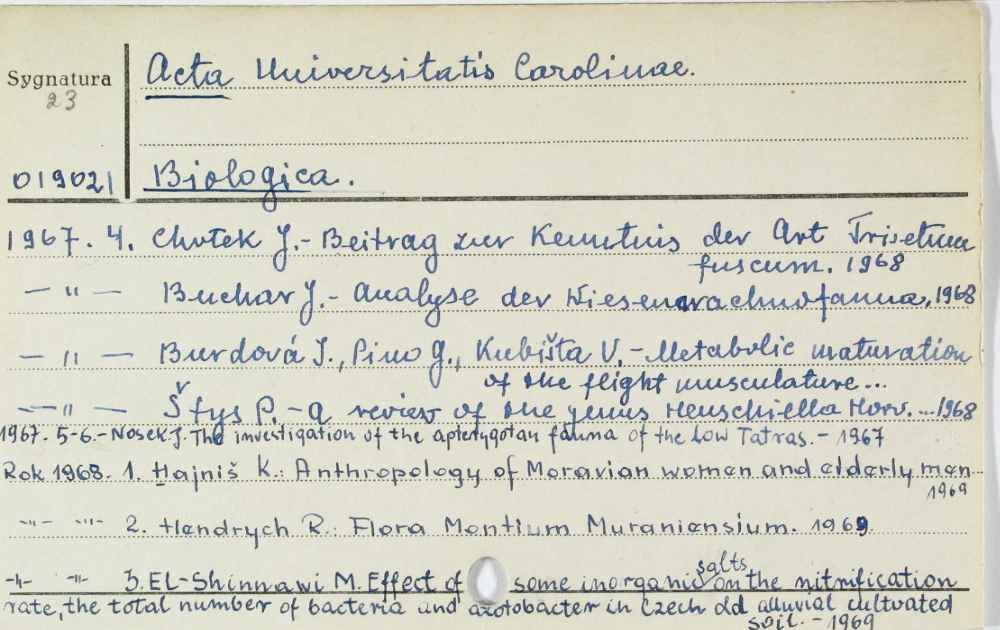 Acta Universitatis Carolinae.
Sygnatura
23
019021 Biologica.
1967. 4. Chrtek J.- Beitrag zur Kenntnis der Art Trisetum
fuscum. 1968
— " — Buchar J.- Analyse der Wiesenarachnofauna, 1968
— " — Burdová J., Pino G., Kubišta V.- Metabolic maturation
of the flight musculature...
— " — Štys P. - a review of the genus Henschiella Horv. ...1968
1967. 5-6.- Nosek J. The investigation of the apterygotan fauna of the Low Tatras. - 1967
Rok 1968. 1. Hajniš K.: Anthropology of Moravian women and elderly men
1969
-"- -"- 2. Hendrych R.: Flora Montium Muraniensium. 1969.
-"- -"- 3. EL-Shinnawi M. Effect of some inorganic salts on the nitrification
rate, the total number of bacteria and azotobacter in Czech old alluvial cultivated
soil. - 1969